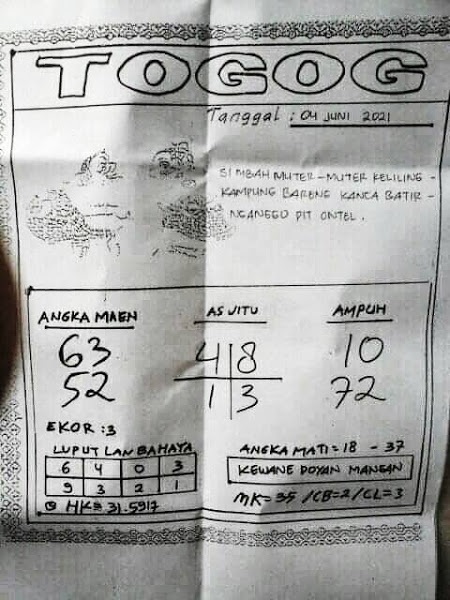 TOGOG
Tanggal : 04 JUNI 2021
SI MBAH MUTER - MUTER KELILING -
KAMPUNG BARENG KANCA BATIR -
NGANGGO PIT ONTEL.
ANGKA MAEN
63
52
AS JITU
4 8
1 3
AMPUH
10
72
EKOR : 3
LUPUT LAN BAHAYA
6 4 0 3
9 3 2 1
HK = 31.5917
ANGKA MATI = 18 - 37
KEWANE DOYAN MANGAN
MK = 35 / CB = 2 / CL = 3